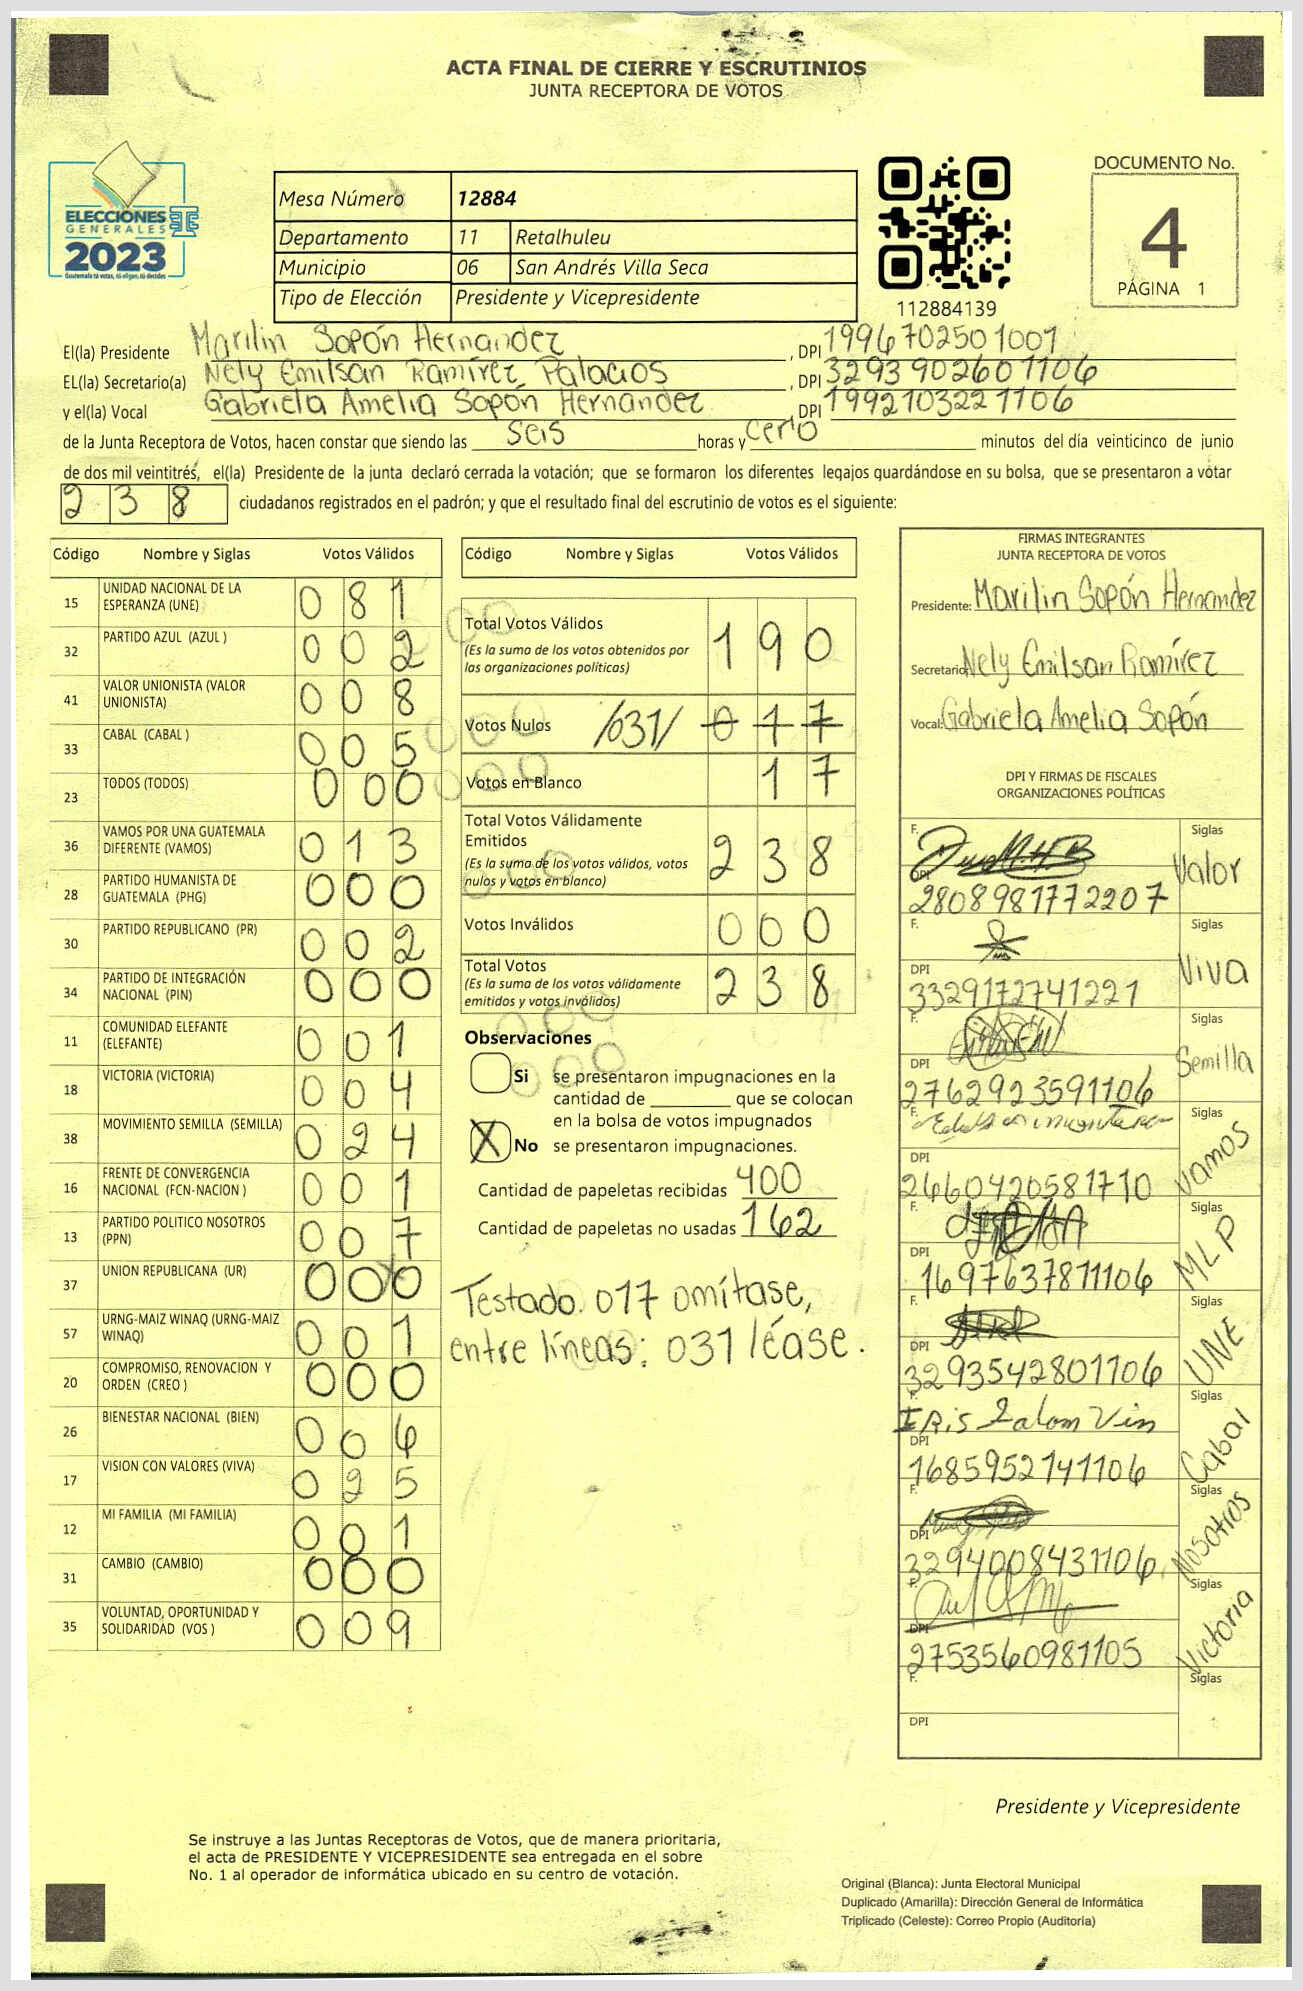 ACTA FINAL DE CIERRE Y ESCRUTINIOS
JUNTA RECEPTORA DE VOTOS
ELECCIONES
GENERALES
2023
Guatemala tú votas, tú eliges, tú decides
Mesa Número 12884
Departamento 11 Retalhuleu
Municipio 06 San Andrés Villa Seca
Tipo de Elección Presidente y Vicepresidente
112884139
DOCUMENTO No.
4
PÁGINA 1
El(la) Presidente Marilin Sopón Hernandez, DPI 1996702501001
EL(la) Secretario(a) Nely Emilsan Ramírez Palacios, DPI 3293902601106
y el(la) Vocal Gabriela Amelia Sopón Hernandez, DPI 1992103221106
de la Junta Receptora de Votos, hacen constar que siendo las seis horas y cero minutos del día veinticinco de junio
de dos mil veintitrés, el(la) Presidente de la junta declaró cerrada la votación; que se formaron los diferentes legajos guardándose en su bolsa, que se presentaron a votar
238 ciudadanos registrados en el padrón; y que el resultado final del escrutinio de votos es el siguiente:
Código Nombre y Siglas Votos Válidos
15 UNIDAD NACIONAL DE LA ESPERANZA (UNE) 081
32 PARTIDO AZUL (AZUL ) 002
41 VALOR UNIONISTA (VALOR UNIONISTA) 008
33 CABAL (CABAL ) 005
23 TODOS (TODOS) 000
36 VAMOS POR UNA GUATEMALA DIFERENTE (VAMOS) 013
28 PARTIDO HUMANISTA DE GUATEMALA (PHG) 000
30 PARTIDO REPUBLICANO (PR) 002
34 PARTIDO DE INTEGRACIÓN NACIONAL (PIN) 000
11 COMUNIDAD ELEFANTE (ELEFANTE) 001
18 VICTORIA (VICTORIA) 004
38 MOVIMIENTO SEMILLA (SEMILLA) 024
16 FRENTE DE CONVERGENCIA NACIONAL (FCN-NACION ) 001
13 PARTIDO POLITICO NOSOTROS (PPN) 007
37 UNION REPUBLICANA (UR) 000
57 URNG-MAIZ WINAQ (URNG-MAIZ WINAQ) 001
20 COMPROMISO, RENOVACION Y ORDEN (CREO ) 000
26 BIENESTAR NACIONAL (BIEN) 006
17 VISION CON VALORES (VIVA) 025
12 MI FAMILIA (MI FAMILIA) 001
31 CAMBIO (CAMBIO) 000
35 VOLUNTAD, OPORTUNIDAD Y SOLIDARIDAD (VOS ) 009
Código Nombre y Siglas Votos Válidos
Total Votos Válidos 190
(Es la suma de los votos obtenidos por
las organizaciones políticas)
Votos Nulos /031/ 017
Votos en Blanco 17
Total Votos Válidamente
Emitidos 238
(Es la suma de los votos válidos, votos
nulos y votos en blanco)
Votos Inválidos 000
Total Votos 238
(Es la suma de los votos válidamente
emitidos y votos inválidos)
Observaciones
Si se presentaron impugnaciones en la
cantidad de ________ que se colocan
en la bolsa de votos impugnados
X No se presentaron impugnaciones.
Cantidad de papeletas recibidas 400
Cantidad de papeletas no usadas 162
Testado. 017 omítase,
entre líneas: 031 léase.
FIRMAS INTEGRANTES
JUNTA RECEPTORA DE VOTOS
Presidente: Marilin Sopón Hernandez
Secretario: Nely Emilsan Ramírez
Vocal: Gabriela Amelia Sopón
DPI Y FIRMAS DE FISCALES
ORGANIZACIONES POLÍTICAS
F. Siglas Valor
DPI 2808981772207
F. Siglas Viva
DPI 3329172741221
F. Siglas Semilla
DPI 2762923591106
F. Siglas Vamos
DPI 2660420581710
F. Siglas MLP
DPI 1697637811106
F. Siglas UNE
DPI 3293542801106
F. IRis Siglas Cabal
DPI 1685952141106
F. Siglas Nosotros
DPI 3294008431106
F. Siglas Victoria
DPI 2753560981105
F. Siglas
DPI
Presidente y Vicepresidente
Se instruye a las Juntas Receptoras de Votos, que de manera prioritaria,
el acta de PRESIDENTE Y VICEPRESIDENTE sea entregada en el sobre
No. 1 al operador de informática ubicado en su centro de votación.
Original (Blanca): Junta Electoral Municipal
Duplicado (Amarilla): Dirección General de Informática
Triplicado (Celeste): Correo Propio (Auditoría)